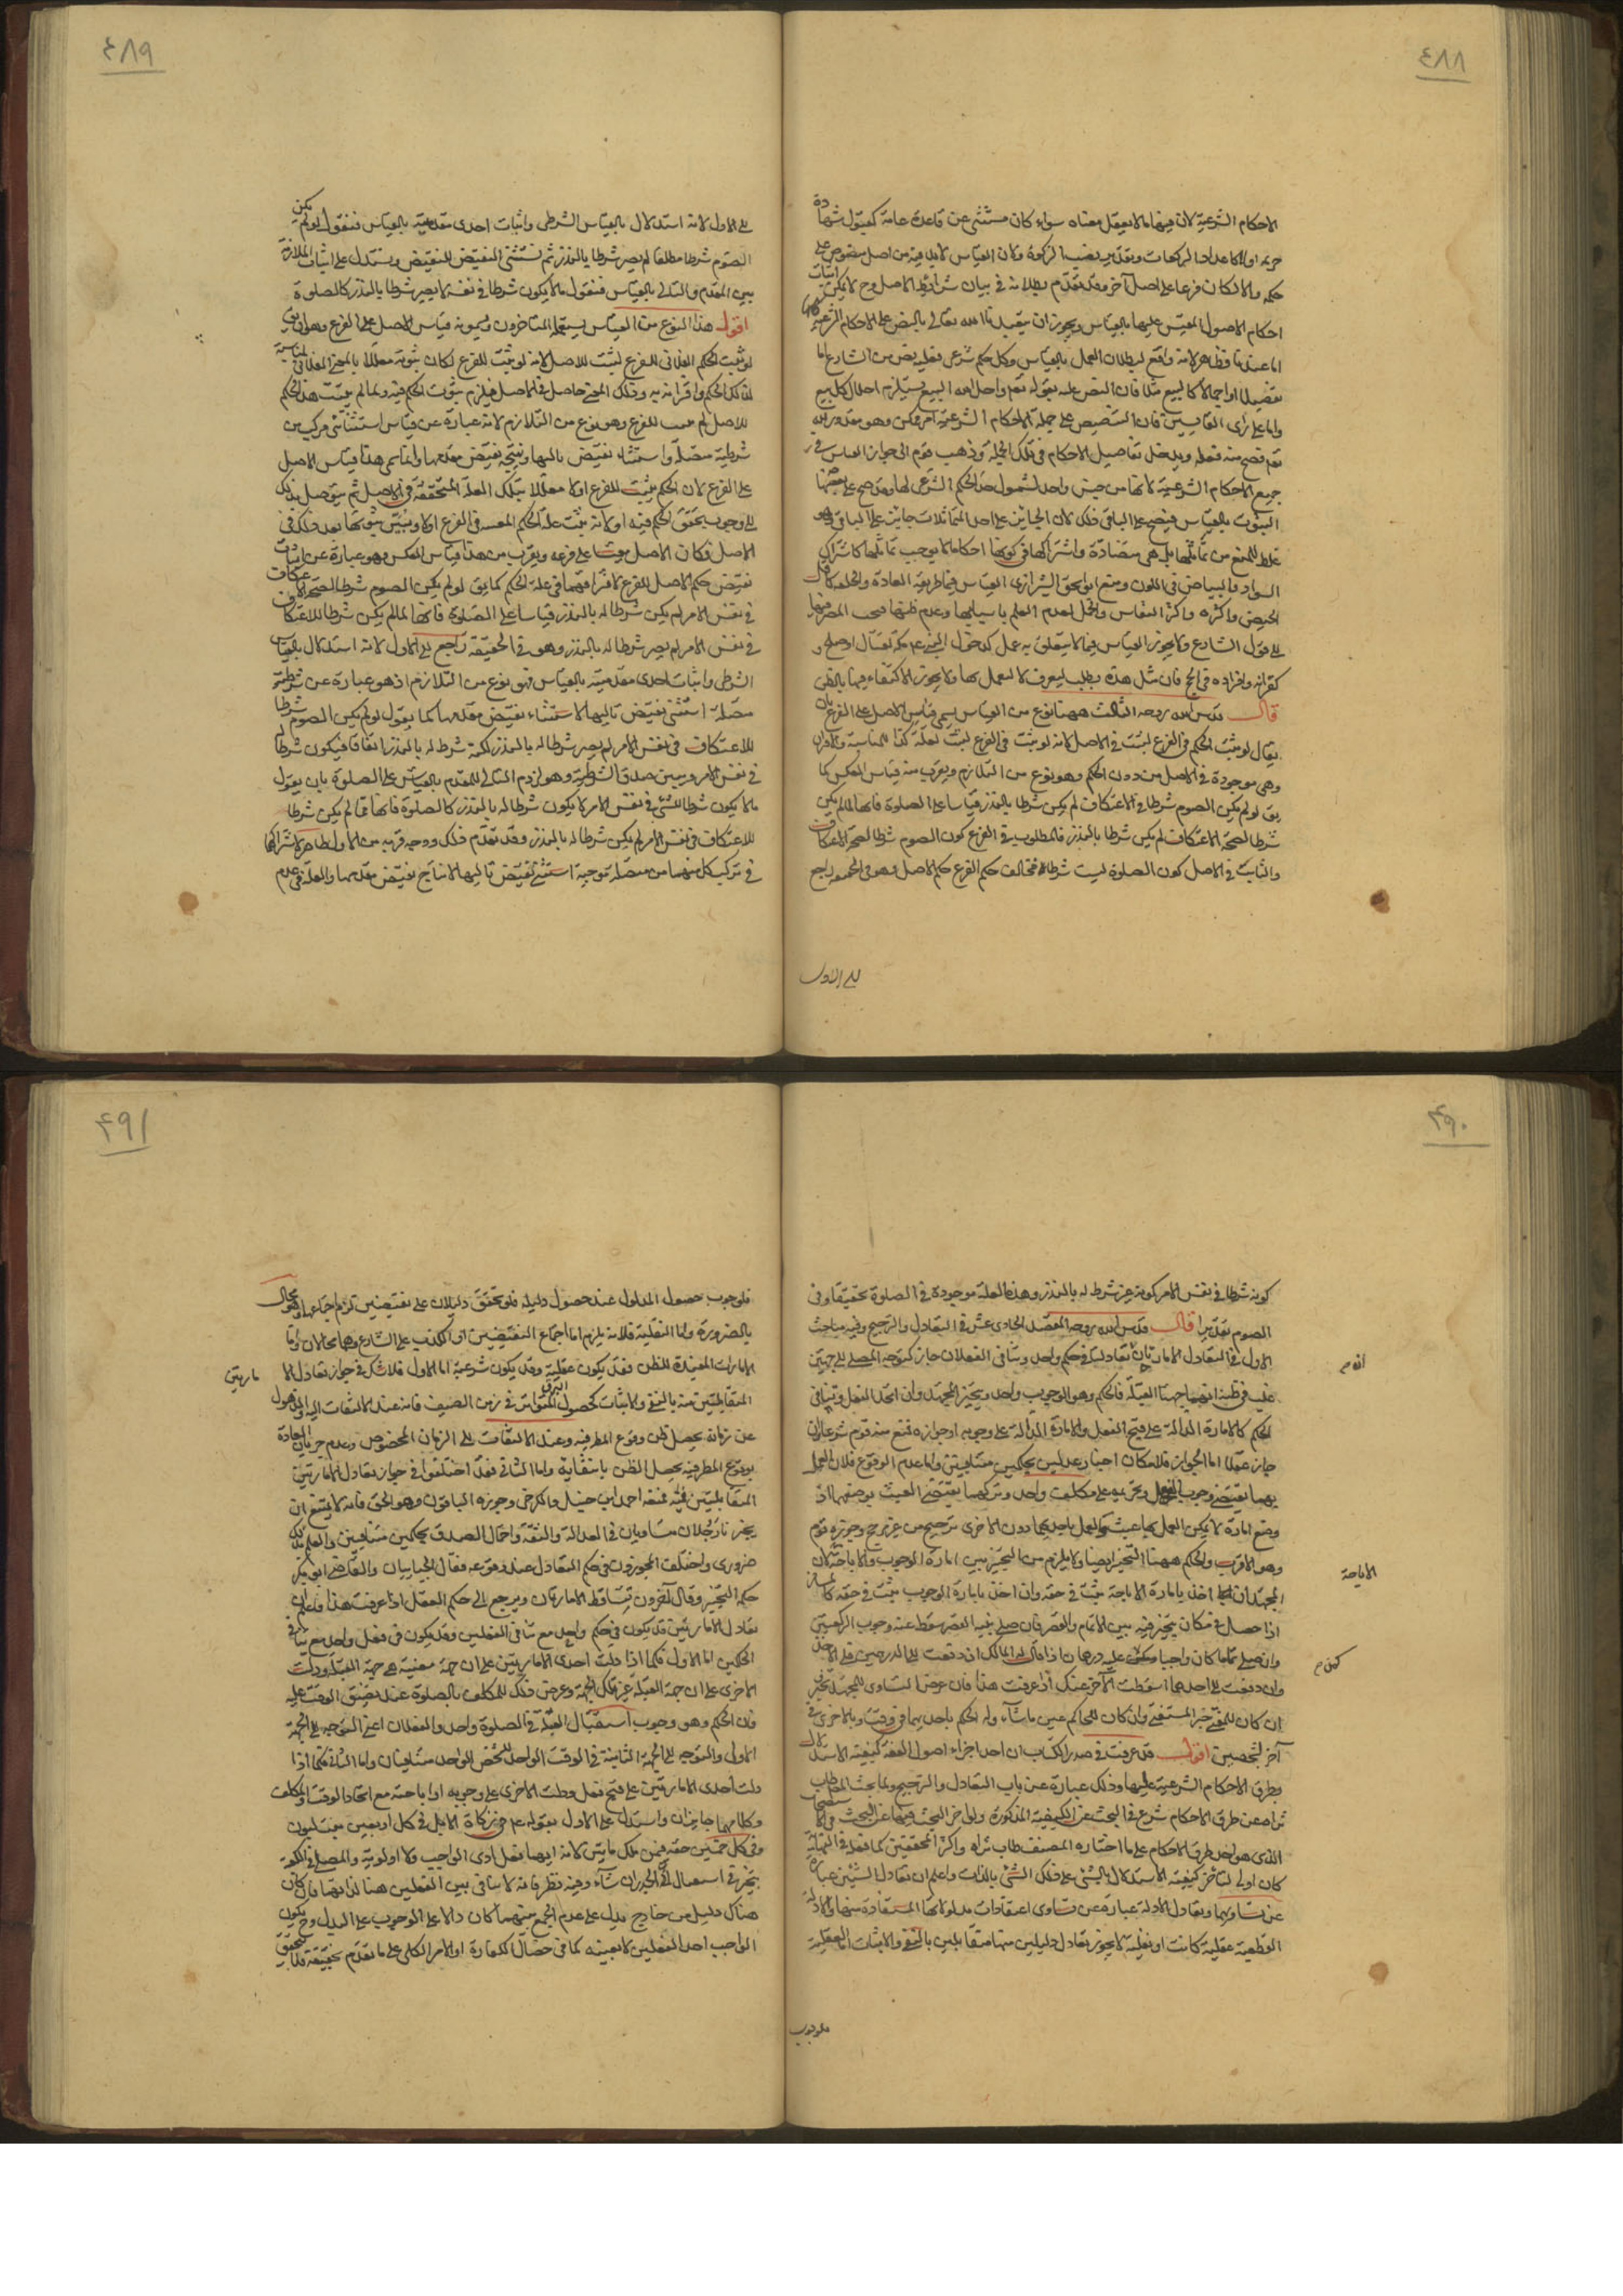 ٤٨٨
الاحكام الشرعية لان فيها ما لا يعقل معناه سواء كان مستثنى عن قاعدة عامة كقبول شهادة
خزيمة اولا كاعداد الركعات وتقدير نصب الزكوة ولان القياس لابد فيه من اصل منصوص على
حكمه والا لكان فرعا على اصل آخر وقد تقدم بطلانه في بيان شرائط الاصل وح لا يمكن اثبات
احكام الاصول المقيس عليها بالقياس ويجوز ان يتعبدنا الله تعالى بالنص على الاحكام الشرعية كلها
اما عندنا فظاهر لانه واقع لبطلان العمل بالقياس وكل حكم شرعى فعليه نص من الشارع اما
تفصيلا او اجمالا كالبيع مثلا فان النص عليه بقوله تعالى واحل الله البيع يستلزم احلال كل بيع
واما على راى القايسين فان التنصيص على جملة الاحكام الشرعية امر ممكن وهو مقدور لله
تعالى فصح منه فعله ويدخل تفاصيل الاحكام في تلك الجملة وذهب قوم الى جواز القياس في
جميع الاحكام الشرعية لانها من جنس واحد لشمول حد الحكم الشرعى لها وقد صح على بعضها
الثبوت بالقياس فيصح على الباقى ذلك لان الجايز على احد المتماثلات جايز على الباقى وهو
غلط للمنع من تماثلها بل هى متضادة واشتراكها في كونها احكاما لا يوجب تماثلها كاشتراك
السواد والبياض في اللون ومنع ابو اسحق الشيرازى القياس فيما طريقه العادة والخلقة كاقل
الحيض واكثره واكثر النفاس والحمل لعدم العلم باسبابها وعدم ظنها فيجب المصير فيها
الى قول الشارع ولا يجوز القياس فيما لا يتعلق به عمل كدخول النبى ع مكة بقتال او صلح و
كقرانه وافراده في الحج فان مثل هذه يطلب ليعرف لا ليعمل بها ولا يجوز الاكتفاء فيها بالظن
قال قدس الله روحه الثالث ههنا نوع من القياس يسمى قياس الاصل على الفرع بان
يقال لو ثبت الحكم في الفرع لثبت في الاصل لانه لو ثبت في الفرع لثبت لعلة كذا للمناسبة والاقتران
وهى موجودة في الاصل من دون الحكم وهو نوع من التلازم ويقرب منه قياس العكس كما
يق لو لم يكن الصوم شرطا في الاعتكاف لم يكن شرطا بالنذر قياسا على الصلوة فانها لما لم يكن
شرطا لصحة الاعتكاف لم يكن شرطا بالنذر فالمطلوب في الفرع كون الصوم شرطا لصحة الاعتكاف
والثابت في الاصل كون الصلوة ليست شرطا فتخالف حكم الفرع حكم الاصل وهو في الحقيقة راجع
الى الاول
٤٨٩
الى الاول لانه استدلال بالقياس الشرطى واثبات احدى مقدمتيه بالقياس فنقول لو لم يكن
الصوم شرطا مطلقا لم يصر شرطا بالنذر ثم نستثنى النقيض للنقيض ونستدل على اثبات الملازمة
بين المقدم والتالى بالقياس فنقول ما لا يكون شرطا في نفسه لا يصير شرطا بالنذر كالصلوة
اقول هذا النوع من القياس يستعمله المتاخرون ويسمونه قياس الاصل على الفرع وهو ان يق
لو ثبت الحكم الفلانى للفرع لثبت للاصل لانه لو ثبت للفرع لكان ثبوته معللا بالمعنى الفلانى لمناسبته
لذلك الحكم واقترانه به وذلك المعنى حاصل في الاصل فيلزم ثبوت الحكم فيه ولما لم يثبت هذا الحكم
للاصل لم يثبت للفرع وهو نوع من التلازم لانه عبارة عن قياس استثنائى مركب من
شرطية متصلة واستثناء نقيض تاليها ونتيجه نقيض مقدمها وانما سمى هذا قياس الاصل
على الفرع لان الحكم يثبت للفرع اولا معللا بتلك العلة المتحققة في الاصل ثم يتوصل بذلك
الى وجوب تحقق الحكم فيه او لانه يثبت علة الحكم المقيسة في الفرع اولا ويتبين ثبوتها بعد ذلك في
الاصل فكان الاصل مقيسا على فرعه ويقرب من هذا قياس العكس وهو عبارة عن اثبات
نقيض حكم الاصل للفرع لافتراقهما في علة الحكم كما يق لو لم يكن الصوم شرطا لصحة الاعتكاف
في نفس الامر لم يكن شرطا له بالنذر قياسا على الصلوة فانها لما لم يكن شرطا للاعتكاف
في نفس الامر لم يصر شرطا له بالنذر وهو في الحقيقة راجع الى الاول لانه استدلال بالقياس
الشرطى واثبات احدى مقدمتيه بالقياس فهو نوع من التلازم اذ هو عبارة عن شرطية
متصلة استثنى نقيض تاليها لاستثناء نقيض مقدمها كما يقول لو لم يكن الصوم شرطا
للاعتكاف في نفس الامر لم يصر شرطا له بالنذر لكنه شرط له بالنذر اتفاقا فيكون شرطا له
في نفس الامر ويبين صدق الشرطية وهو لزوم التالى للمقدم بالقياس على الصلوة بان يقول
ما لا يكون شرطا للشئ في نفس الامر لا يكون شرطا له بالنذر كالصلوة فانها لما لم يكن شرطا
للاعتكاف في نفس الامر لم يكن شرطا له بالنذر وقد تقدم ذلك ووجه قربه من الاول ظاهر لاشتراكهما
في تركيب كل منهما من متصلة موجبة استثنى نقيض تاليها لانتاج نقيض مقدمها والعلة في عدم
٤٩٠
كونه شرطا في نفس الامر كونه غير شرط له بالنذر وهذه العلة موجودة في الصلوة تحقيقا وفى
الصوم تقديرا قال قدس الله روحه الفصل الحادى عشر في التعادل والترجيح وفيه مباحث
الاول في التعادل الامارتان ان تعادلتا في حكم واحد وتنافى الفعلان جاز كتوجه المصلى الى جهتين
غلب في ظنه انهما جهتا القبلة فالحكم وهو الوجوب واحد ويتخير المجتهد وان اتحد الفعل وتنافى
الحكم كالامارة الدالة على قبح الفعل والامارة الدالة على وجوبه او جوازه فمنع منه قوم شرعا وان
جاز عقلا اما الجواز فلامكان اخبار عدلين بحكمين متنافيين واما عدم الوقوع فلان العمل
بهما يقتضى وجوب الفعل وتحريمه على مكلف واحد وتركهما يقتضى العبث بوضعهما اذ
وضع امارة لا يمكن العمل بها عبث والعمل باحديهما دون الاخرى ترجيح من غير مرجح وجوزه قوم
وهو الاقرب والحكم ههنا التخيير ايضا ولا يلزم من التخيير بين امارة الوجوب والاباحة لان
المجتهد ان اخذ بامارة الاباحة يثبت في حقه وان اخذ بامارة الوجوب يثبت في حقه كالمسافر
اذا حصل في مكان يتخير فيه بين الاتمام والقصر فان صلى بنية القصر سقط عنه وجوب الركعتين
وان صلى تماما كان واجبا وكمن عليه درهمان اذا قال له المالك ان دفعت الى الدرهمين قبلا
وان دفعت الى احدهما اسقطت الآخر عنك اذا عرفت هذا فان عرض التساوى للمجتهد تخير
ان كان للمفتى خير المستفتى وان كان للحاكم عين ما شاء وله الحكم باحديهما في وقت وبالاخرى في
آخر لشخصين اقول قد عرفت في صدر الكتاب ان احد اجزاء اصول الفقه كيفية الاستدلال
بطرق الاحكام الشرعية عليها وذلك عبارة عن باب التعادل والترجيح ولما بحث المص طاب
ثراه عن طرق الاحكام شرع في البحث عن الكيفية المذكورة ولو اخر البحث فيها عن البحث في الاستصحاب
الذى هو احد طرق الاحكام على ما اختاره المصنف طاب ثراه واكثر المحققين كما فعله في النهاية
كان اولى لتاخر كيفية الاستدلال بالشئ على ذلك الشئ بالذات واعلم ان تعادل الشيئين عبارة
عن تساويهما وتعادل الادلة عبارة عن تساوى اعتقادات مدلولاتها المستفادة منها والادلة
القطعية عقلية كانت او نقلية لا يجوز تعادل دليلين منها متقابلين بالنفى والاثبات اما العقلية
الاباحة
فلوجوب
٤٩١
فلوجوب حصول المدلول عند حصول دليله فلو تحقق دليلان على نقيضين لزم اجتماعهما وهو محال
بالضرورة واما النقلية فلانه يلزم اما اجتماع النقيضين او الكذب على الشارع وهما محالان واما
الامارات المفيدة للظن فقد يكون عقلية وقد يكون شرعية اما الاول فلا شك في جواز تعادل الا
مارتين
المتقابلتين منه بالنفى والاثبات كحصول البرق المتواتر في زمن الصيف فانه عند الالتفات اليه والذهول
عن زمانه يحصل ظن وقوع المطر فيه وعند الالتفات الى الزمان المخصوص وعدم جريان العادة
بوقوع المطر فيه يحصل الظن بانتفائه واما الثانى فقد اختلفوا في جواز تعادل الامارتين
المتقابلتين فيه فمنعه احمد ابن حنبل والكرخى وجوزه الباقون وهو الحق فانه لا يمتنع ان
يخبرنا رجلان متساويان في العدالة والثقة واحتمال الصدق بحكمين متنافيين والعلم بذلك
ضرورى واختلف المجوزون في حكم التعادل عند وقوعه فقال الجبائيان والقاضى ابو بكر
حكمه التخيير وقال آخرون يتساقط الامارتان ويرجع الى حكم العقل اذا عرفت هذا فاعلم ان
تعادل الامارتين قد يكون في حكم واحد مع تنافى الفعلين وقد يكون في فعل واحد مع تنافى
الحكمين اما الاول فكما اذا دلت احدى الامارتين على ان جهة معينة هى جهة القبلة ودلت
الاخرى على ان جهة القبلة غير تلك الجهة وعرض ذلك للمكلف بالصلوة عند تضيق الوقت عليه
فان الحكم وهو وجوب استقبال القبلة في الصلوة واحد والفعلان اعنى التوجه الى الجهة
الاولى والتوجه الى الجهة الثانية في الوقت الواحد للشخص الواحد متنافيان واما الثانى فكما اذا
دلت احدى الامارتين على قبح فعل ودلت الاخرى على وجوبه او اباحته مع اتحاد الوقت والمكلف
وكلاهما جايزان واستدل على الاول بقوله ع في زكاة الابل في كل اربعين بنت لبون
وفى كل خمسين حقه فمن ملك مايتين لانه ايهما فعل ادى الواجب ولا اولوية والمصلى في الكعبة
يتخير في استقبال اى الجدران شاء وفيه نظر فانه لا تنافى بين الفعلين هنا لذاتهما فان كان
هناك دليل من خارج يدل على عدم الجمع بينهما كان دالا على الوجوب على البدل وح يكون
الواجب احد الفعلين لا بعينه كما في خصال الكفارة او الامر الكلى على ما تقدم تحقيقه فلا يتحقق